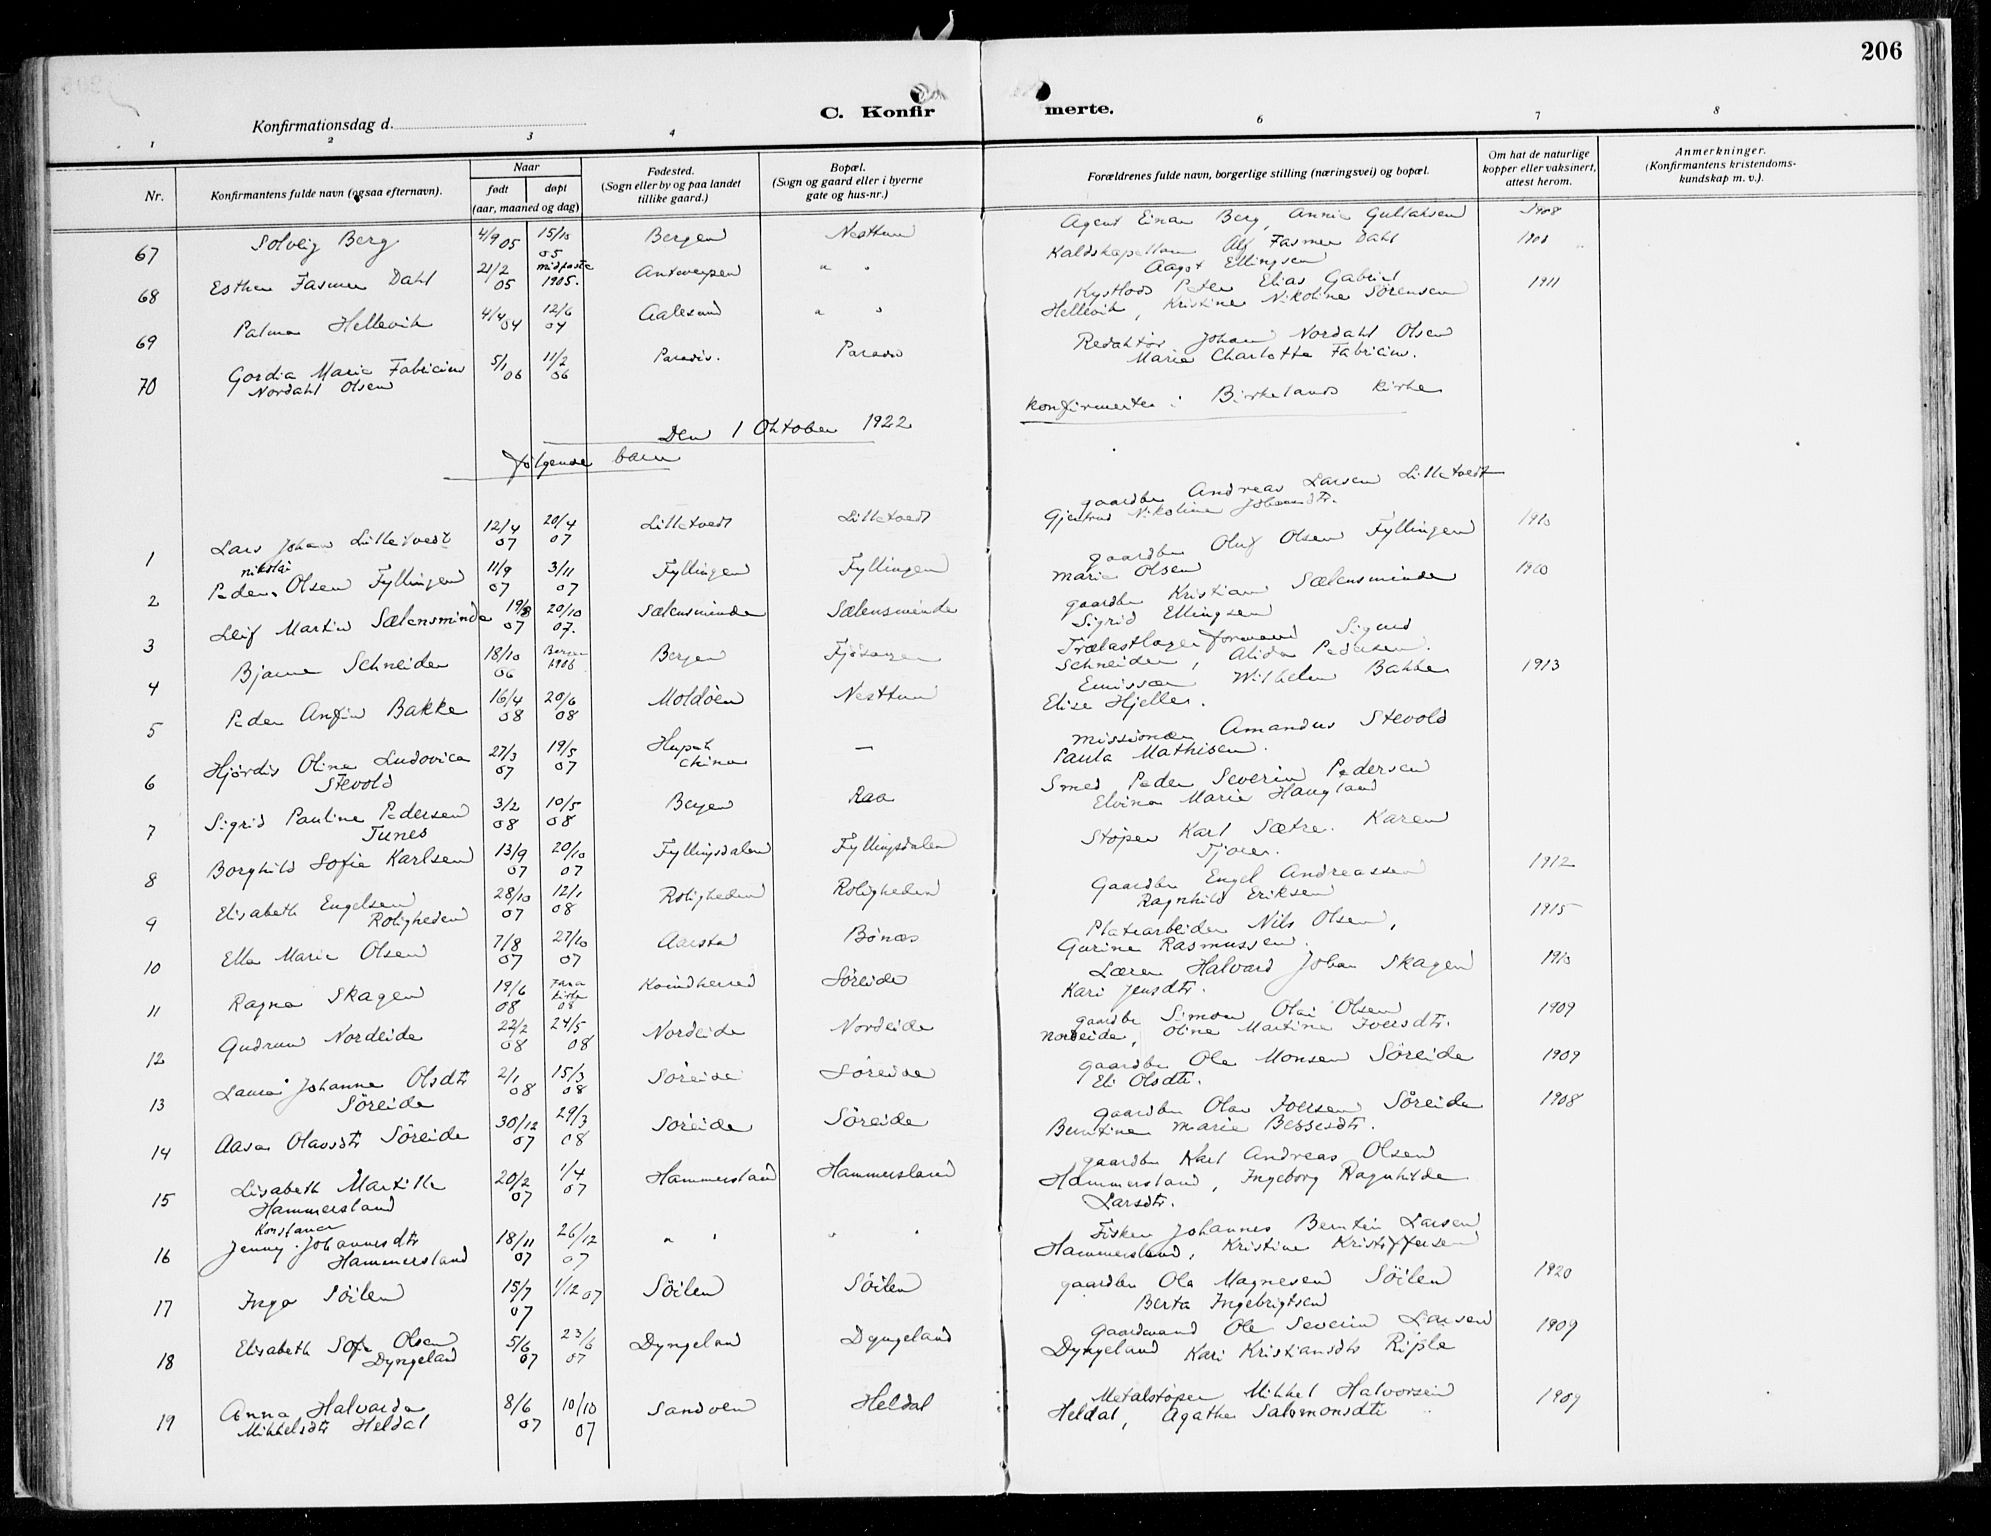 206
C. Konfir merte.
Konfirmationsdag d.
1 2 3 4 6 7 8
Nr.
Konfirmantens fulde navn (ogsaa efternavn).
Naar
født døpt
(aar, maaned og dag)
Fødested.
(Sogn eller by og paa landet
tillike gaard.)
Bopæl.
(Sogn og gaard eller i byerne
gate og hus-nr.)
Forældrenes fulde navn, borgerlige stilling (næringsvei) og bopæl.
Om hat de naturlige
kopper eller vaksinert,
attest herom.
Anmerkninger.
(Konfirmantens kristendoms-
kundskap m. v.).
67 Solveig Berg 4/9 05 15/10 05 Bergen Nesttun Agent Einar Berg, Annie Gullaksen 1908
68 Esther Fasmer Dahl 21/2 05 1905. Antwerpen " " Kaldskapellan Alf Fasmer Dahl
Aagot Ellingsen
69 Palma Hellevik 4/4 04 12/6 04 Aalesund " " Kystlods Peter Elias Gabriel
Hellevik, Kristine Nikoline Sørensen 1911
70 Gordia Marie Fabricius
Nordahl Olsen 5/1 06 11/2 06 Paradis. Paradis Redaktør Johan Nordahl Olsen
Marie Charlotte Fabricius.
Den 1 Oktober 1922 konfirmertes i Birkelands kirke
følgende barn
1 Lars Johan Lilletvedt 12/4 07 20/4 07 Lilletvedt Lilletvedt gaardbr Andreas Larsen Lilletvedt
Gjertrud Nikoline Johannsdtr.
2 Peder Nikolai Olsen Fyllingen 11/9 07 3/11 07 Fyllingen Fyllingen gaardbr Oluf Olsen Fyllingen
Marie Olsen 1910
3 Leif Martin Sælensminde 19/8 07 20/10 07. Sælensminde Sælensminde gaardbr Kristian Sælensminde
Sigrid Ellingsen
4 Bjarne Schneider 18/10 06 Bergen 1906 Bergen Fjøsanger Trælastlagerformand Sigurd
Schneider, Alida Pedersen.
5 Peder Anfin Bakke 16/4 08 20/6 08 Moldøen Nesttun Emissær Wilhelm Bakke
Elise Hjelle. 1913
6 Hjørdis Oline Ludovica
Stevold 27/3 07 19/5 07 Hupeh
China — missionær Amandus Stevold
Paula Mathisen.
7 Sigrid Pauline Pedersen
Tunes 3/2 08 10/5 08 Bergen Raa Smed Peder Severin Pedersen
Elvina Marie Haugland
8 Borghild Sofie Karlsen 13/9 07 20/10 07 Fyllingsdalen Fyllingsdalen Støper Karl Sætre. Karen
9 Elisabeth Engelsen
Roligheden 28/10 07 12/1 08 Roligheden Roligheden Gaardbr Engel Andreassen
Ragnhild Eriksen 1912
10 Ella Marie Olsen 7/8 07 27/10 07 Aarstad Bønæs Platearbeider Nils Olsen,
Gurine Rasmussen. 1915
11 Ragna Skagen 19/6 08 Fana
kirke
08 Kvindherred Søreide Lærer Halvard Johan Skagen
Kari Jensdtr.
12 Gudrun Nordeide 22/2 08 24/5 08 Nordeide Nordeide gaardbr Simon Olai Olsen
Nordeide, Oline Martine Iversdtr. 1909
13 Laura Johanne Olsdtr
Søreide 2/1 08 15/3 08 Søreide Søreide gaardbr Ole Monsen Søreide
Eli Olsdtr. 1909
14 Aasa Olavsdtr Søreide 30/12 07 29/3 08 Søreide Søreide gaardbr Olav Iversen Søreide
Berntine Marie Bessesdtr. 1908
15 Lisabeth Martille
Hammersland 20/2 07 1/4 07 Hammersland Hammersland gaardbr Karl Andreas Olsen
Hammersland, Ingeborg Ragnhilde
Larsdtr.
16 Jenny Konstance Johannesdtr
Hammersland 18/11 07 26/12 07 " " " " Fisker Johannes Berntin Larsen
Hammersland, Kristine Kristiffersen
17 Inga Søilen 15/7 07 1/12 07 Søilen Søilen gaardbr Ola Magnesen Søilen
Berta Ingebrigtsen 1920
18 Elisabeth Sofie Olsen
Dyngeland 5/6 07 23/6 07 Dyngeland Dyngeland Gaardmand Ole Severin Larsen
Dyngeland Kari Kristiansdtr Riple 1909
19 Anna Halvarda
Mikkelsdtr Heldal 8/6 07 10/10 07 Sandven Heldal Metalstøper Mikkel Halvorsen
Heldal, Agathe Salomonsdtr 1909